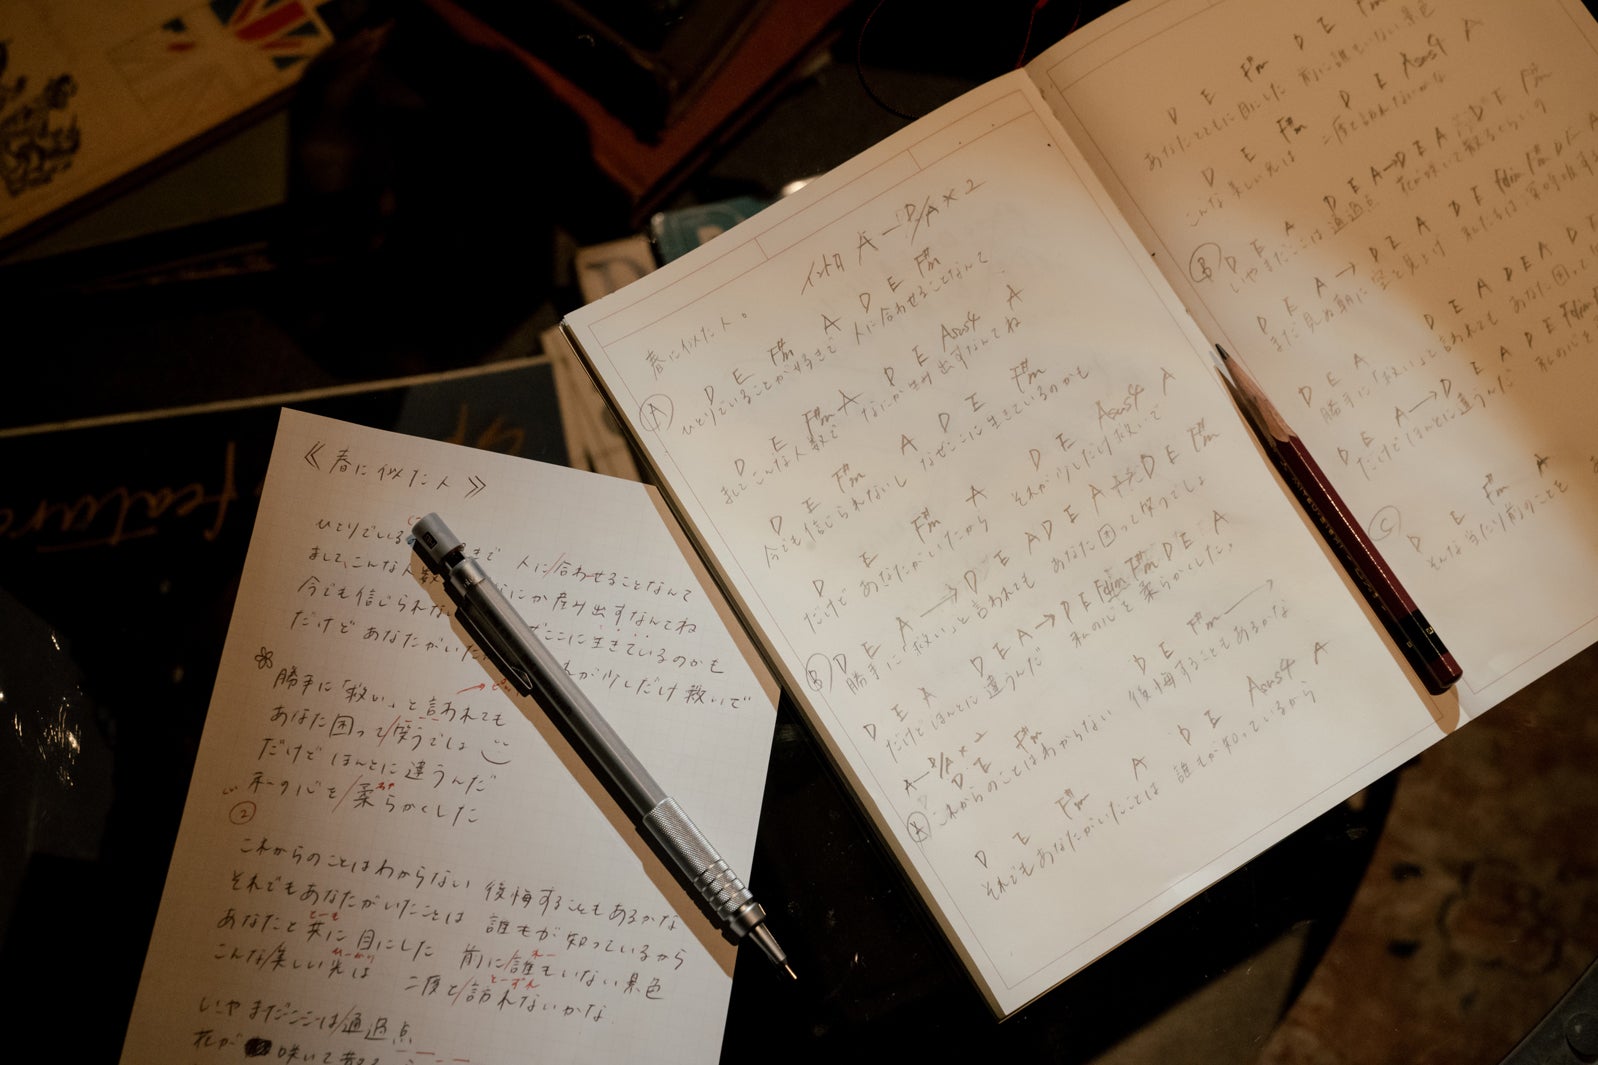 《春に似た人》
ひとりでいる まで 人に/合わせることなんて
まして、こんな人数 なにか産み出すなんてね
今でも信じられない ぜここに生きているのかも
だけど あなたがいた が少しだけ救いで
勝手に「救い」と言われても
あなた困って/笑うでしょ
だけど ほんとに 違うんだ
私の心を/柔らかくした
②
これからのことはわからない 後悔することもあるかな
それでもあなたがいたことは 誰もが知っているから
あなたと共に 目にした 前に/誰もいない景色
こんな/美しい光は 二度と/訪れないかな
いやまだここは/通過点
花が 咲いて
春に似た人。
イントロ A—D/A×2
D E F#m A D E F#m
Ⓐ ひとりでいることが好きで 人に合わせることなんて
D E F#m A D E Asus4 A
ましてこんな人数で なにか生み出すなんてね
D E F#m A D E F#m
今でも信じられないし なぜここに生きているのかも
D E F#m A D E Asus4 A
だけど あなたがいたから それが少しだけ救いで
Ⓑ D E A → D E A D E A D E F#m
勝手に「救い」と言われても あなた困って笑うでしょ
D E A D E A → D E Fdim F#m D E A
だけどほんとに違うんだ 私の心を柔らかくした。
A—D/A×2
D E F#m D E F#m →
Ⓐ これからのことはわからない 後悔することもあるかな
D E F#m A D E Asus4 A
それでもあなたがいたことは 誰もが知っているから
D E F#m D E F#m
あなたとともに目にした 前に誰もいない景色
D E F#m D E Asus4 A
こんな美しい光は 二度と訪れないかな
Ⓑ D E A D E A → D E A D E F#m
いやまだここは通過点 花が咲いて散るくらいの
D E A → D E A D E Fdim F#m D E A
まだ見ぬ朝に 空を見上げ 私たちは
D E A D E A D E A D E
勝手に「救い」と言われても あなた困って
D E A → D E A D E Fdim
だけどほんとに違うんだ 私の心を
Ⓒ D E F#m A
そんな当たり前のことを
featur